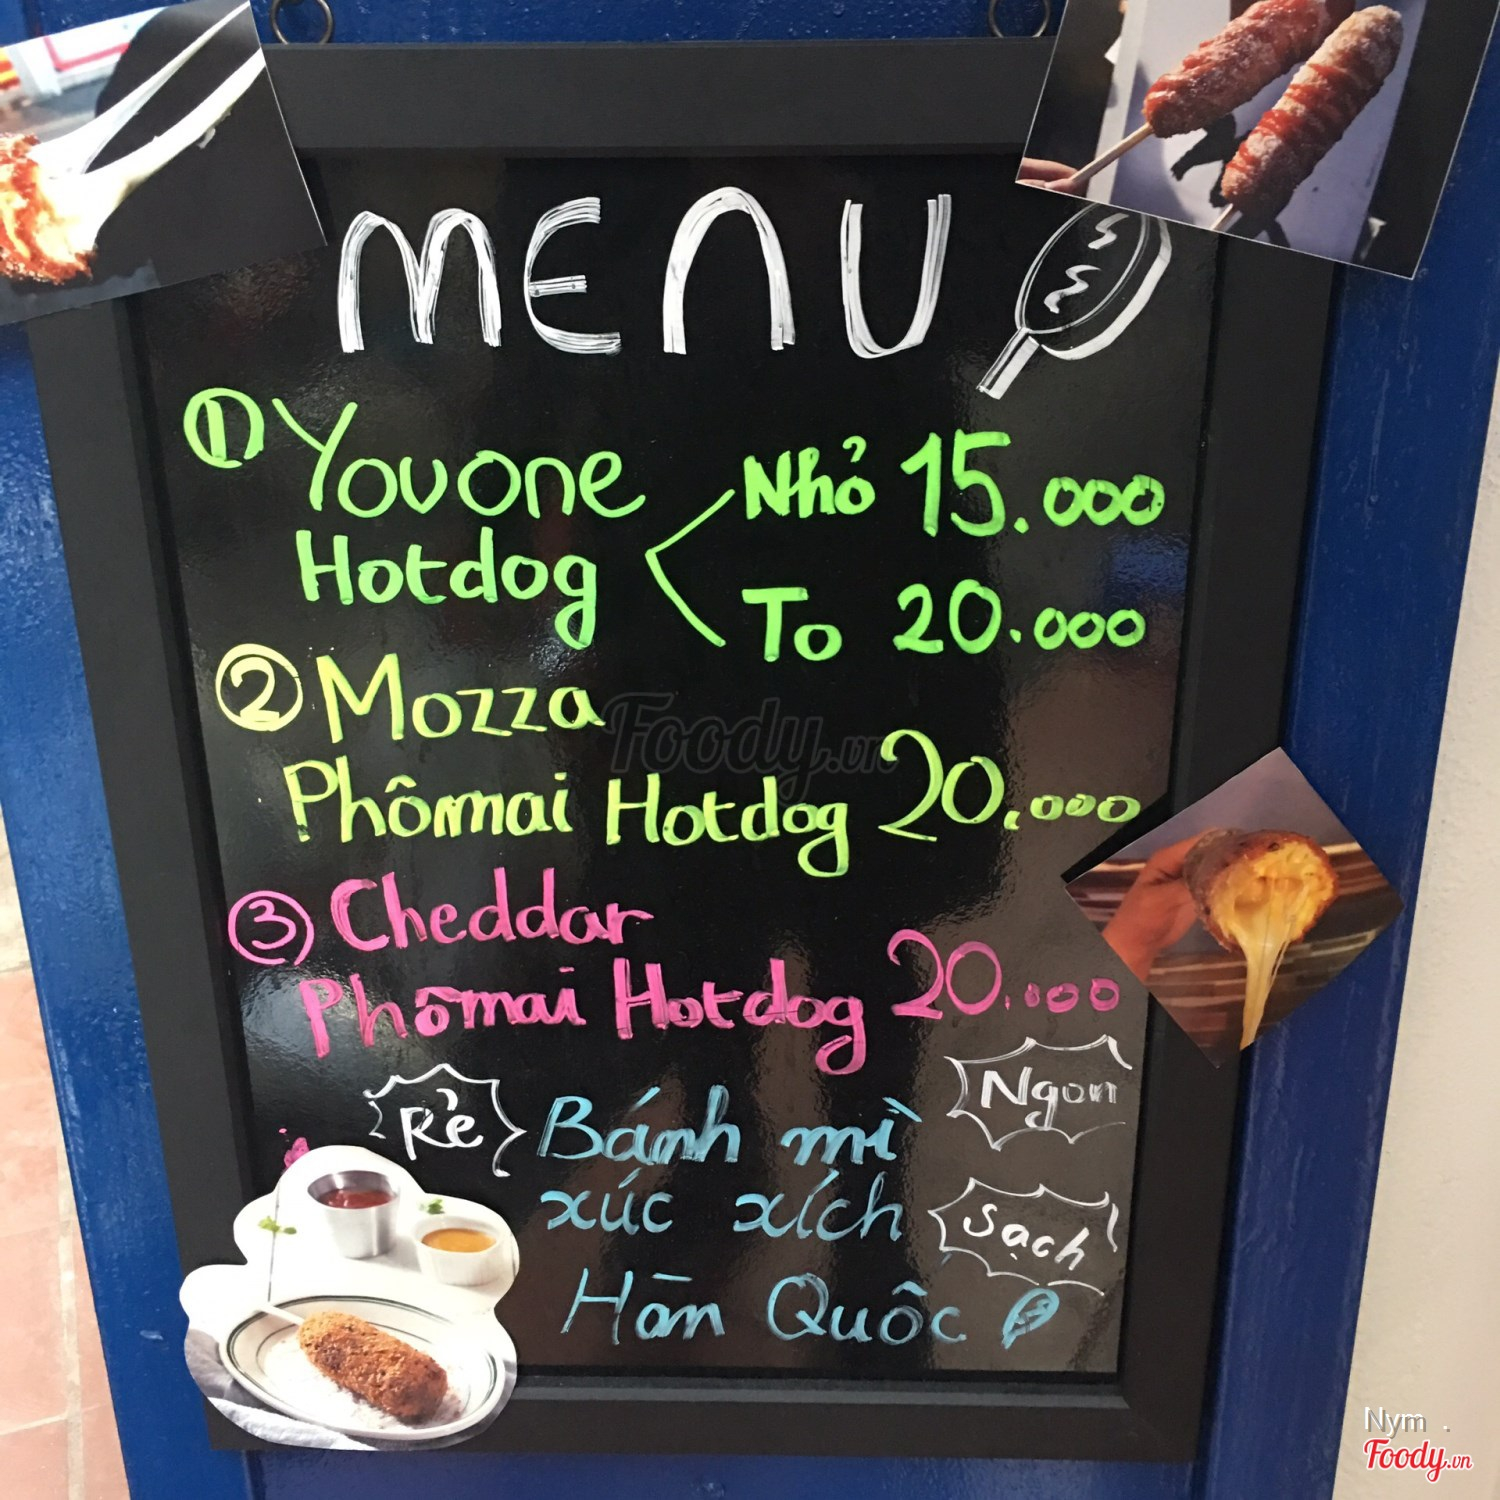 MENU
① Youone Nhỏ 15.000
Hotdog To 20.000
② Mozza
Phômai Hotdog 20.000
③ Cheddar
Phômai Hotdog 20.000
Rẻ Bánh mì Ngon
xúc xích Sạch
Hàn Quốc
Foody.vn
Nym .
Foody.vn